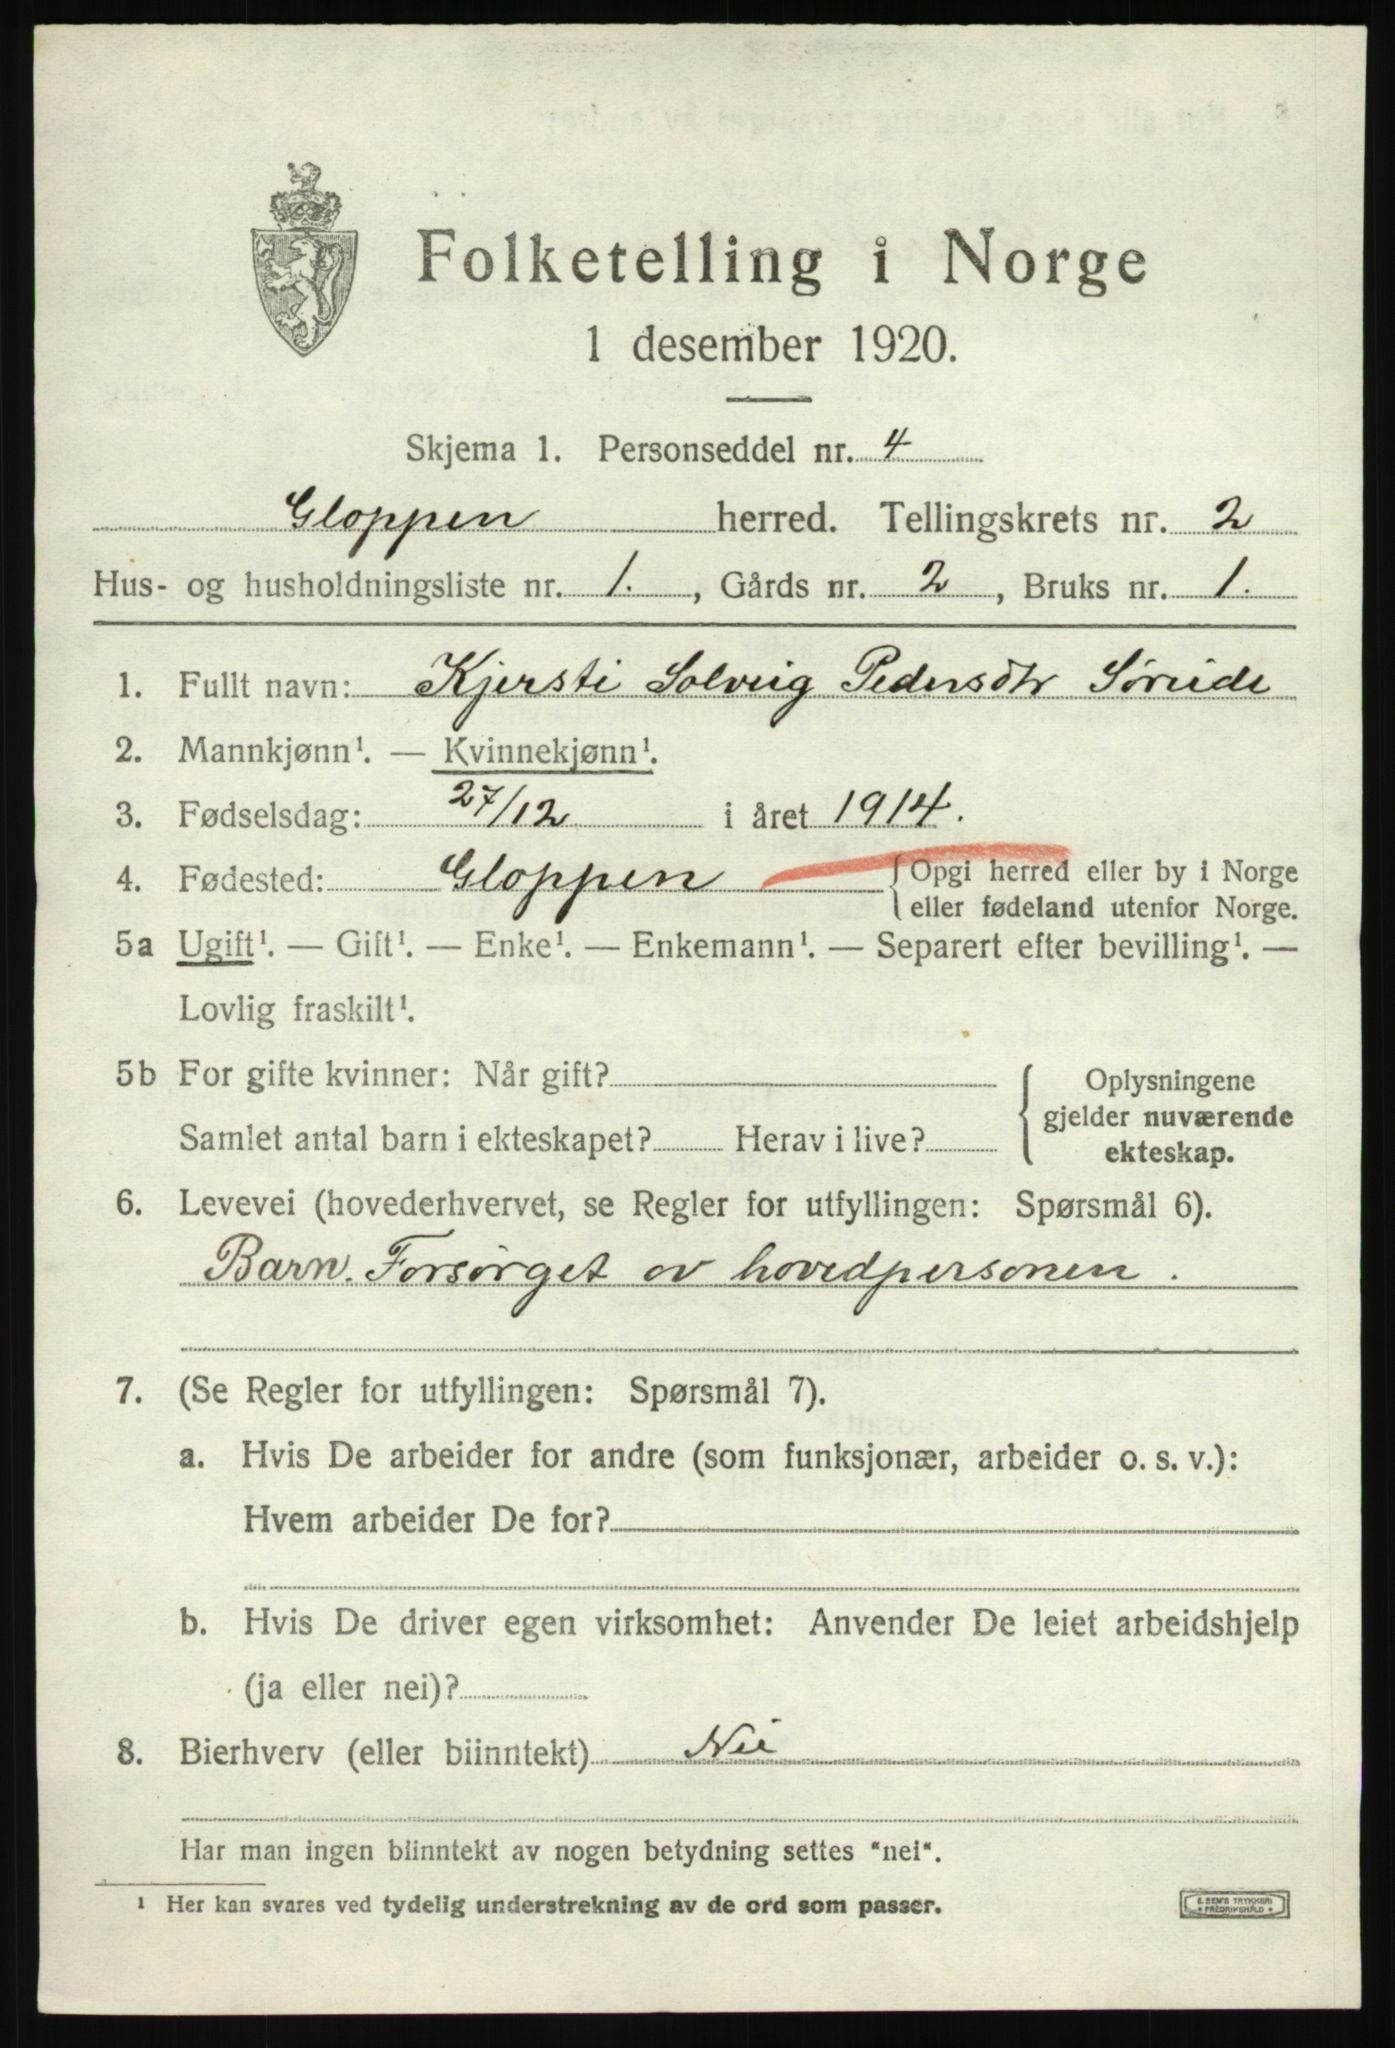 Folketelling i Norge
1 desember 1920.
Skjema 1. Personseddel nr. 4
Gloppen herred. Tellingskrets nr. 2
Hus- og husholdningsliste nr. 1., Gårds nr. 2, Bruks nr. 1.
1. Fullt navn: Kjersti Solveig Pedersdtr Söreide
2. Mannkjønn¹. — Kvinnekjønn¹.
3. Fødselsdag: 27/12 i året 1914.
4. Fødested: Gloppen { Opgi herred eller by i Norge
eller fødeland utenfor Norge.
5a Ugift¹. — Gift¹. — Enke¹. — Enkemann¹. — Separert efter bevilling¹. —
Lovlig fraskilt¹.
5b For gifte kvinner: Når gift?
Samlet antal barn i ekteskapet? Herav i live?
{ Oplysningene
gjelder nuværende
ekteskap.
6. Levevei (hovederhvervet, se Regler for utfyllingen: Spørsmål 6).
Barn. Forsörget av hovedpersonen.
7. (Se Regler for utfyllingen: Spørsmål 7).
a. Hvis De arbeider for andre (som funksjonær, arbeider o. s. v.):
Hvem arbeider De for?
b. Hvis De driver egen virksomhet: Anvender De leiet arbeidshjelp
(ja eller nei)?
8. Bierhverv (eller biinntekt) Nei
Har man ingen biinntekt av nogen betydning settes "nei".
¹ Her kan svares ved tydelig understrekning av de ord som passer.
E. SEM'S TRYKKERI
FREDRIKSHALD